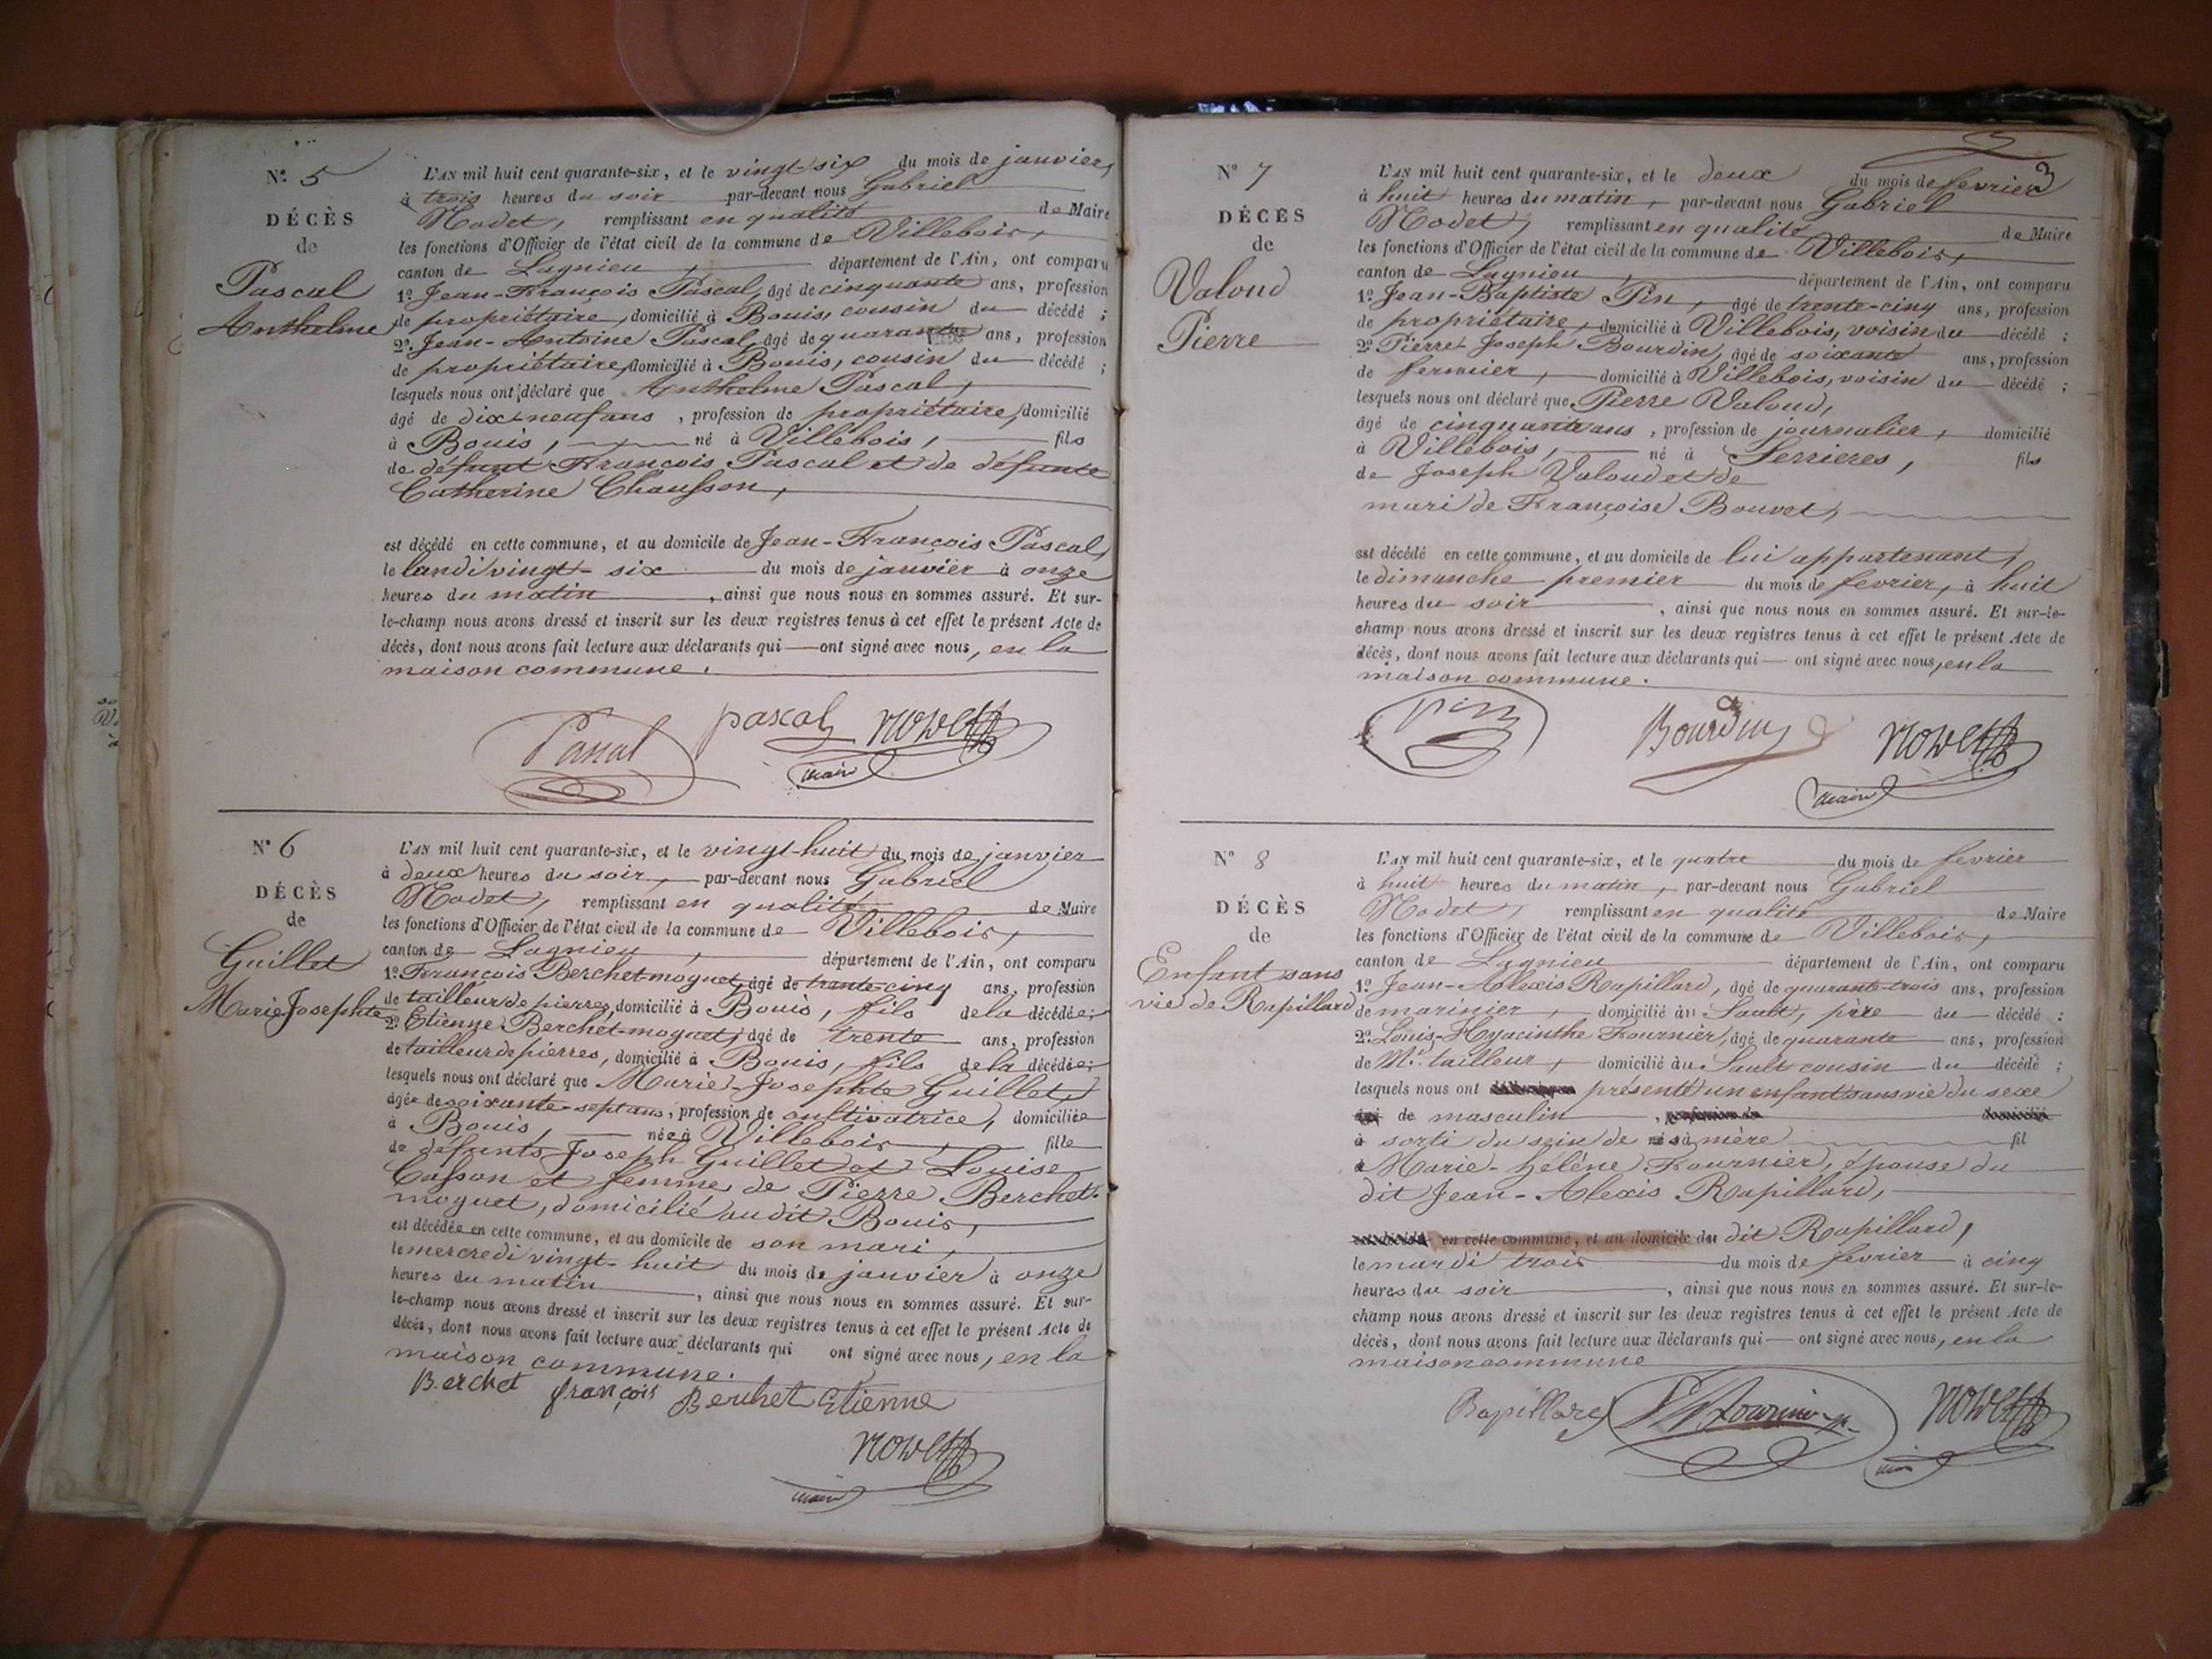 N° 5
DÉCÈS
de
Pascal
Anthelme
L'AN mil huit cent quarante-six, et le vingt-six du mois de janvier,
à trois heures du soir par-devant nous Gabriel
Nodet, remplissant en qualité de Maire
les fonctions d'Officier de l'état civil de la commune de Villebois,
canton de Lagnieu, département de l'Ain, ont comparu
1° Jean-François Pascal, âgé de cinquante ans, profession
de propriétaire, domicilié à Bouis, cousin du décédé ;
2° Jean-Antoine Pascal, âgé de quarante ans, profession
de propriétaire, domicilié à Bouis, cousin du décédé ;
lesquels nous ont déclaré que Anthelme Pascal,
âgé de dix-neuf ans, profession de propriétaire, domicilié
à Bouis, né à Villebois, fils
de défunt François Pascal et de défunte
Catherine Chausson,
est décédé en cette commune, et au domicile de Jean-François Pascal,
le lundi vingt-six du mois de janvier à onze
heures du matin, ainsi que nous nous en sommes assuré. Et sur-
le-champ nous avons dressé et inscrit sur les deux registres tenus à cet effet le présent Acte de
décès, dont nous avons fait lecture aux déclarants qui — ont signé avec nous, en la
maison commune.
Pascal pascal Nodet
maire
N° 6
DÉCÈS
de
Guillet
Marie Josephte
L'AN mil huit cent quarante-six, et le vingt-huit du mois de janvier
à deux heures du soir, par-devant nous Gabriel
Nodet, remplissant en qualité de Maire
les fonctions d'Officier de l'état civil de la commune de Villebois,
canton de Lagnieu, département de l'Ain, ont comparu
1° François Berchet-moguet, âgé de trente-cinq ans, profession
de tailleur de pierres, domicilié à Bouis, fils de la décédée ;
2° Etienne Berchet-moguet, âgé de trente ans, profession
de tailleur de pierres, domicilié à Bouis, fils de la décédée ;
lesquels nous ont déclaré que Marie-Josephte Guillet,
âgée de soixante-sept ans, profession de cultivatrice, domiciliée
à Bouis, née à Villebois, fille
de défunts Joseph Guillet et Louise
Casson et femme de Pierre Berchet-
moguet, domicilié au dit Bouis,
est décédée en cette commune, et au domicile de son mari,
le mercredi vingt-huit du mois de janvier à onze
heures du matin, ainsi que nous nous en sommes assuré. Et sur-
le-champ nous avons dressé et inscrit sur les deux registres tenus à cet effet le présent Acte de
décès, dont nous avons fait lecture aux déclarants qui ont signé avec nous, en la
maison commune.
Berchet françois Berchet Etienne
Nodet
maire
3
N° 7
DÉCÈS
de
Valoud
Pierre
L'AN mil huit cent quarante-six, et le deux du mois de fevrier
à huit heures du matin, par-devant nous Gabriel
Nodet, remplissant en qualité de Maire
les fonctions d'Officier de l'état civil de la commune de Villebois,
canton de Lagnieu, département de l'Ain, ont comparu
1° Jean-Baptiste Pin, âgé de trente-cinq ans, profession
de propriétaire, domicilié à Villebois, voisin du décédé ;
2° Pierre Joseph Bourdin, âgé de soixante ans, profession
de fermier, domicilié à Villebois, voisin du décédé ;
lesquels nous ont déclaré que Pierre Valoud,
âgé de cinquante ans, profession de journalier, domicilié
à Villebois, né à Serrieres, fils
de Joseph Valoud et de
mari de Françoise Bouvet,
est décédé en cette commune, et au domicile de lui appartenant,
le dimanche premier du mois de fevrier, à huit
heures du soir, ainsi que nous nous en sommes assuré. Et sur-le-
champ nous avons dressé et inscrit sur les deux registres tenus à cet effet le présent Acte de
décès, dont nous avons fait lecture aux déclarants qui — ont signé avec nous, en la
maison commune.
Pin Bourdin Nodet
maire
N° 8
DÉCÈS
de
Enfant sans
vie de Rapillard
L'AN mil huit cent quarante-six, et le quatre du mois de fevrier
à huit heures du matin, par-devant nous Gabriel
Nodet, remplissant en qualité de Maire
les fonctions d'Officier de l'état civil de la commune de Villebois,
canton de Lagnieu département de l'Ain, ont comparu
1° Jean-Alexis Rapillard, âgé de quarante-trois ans, profession
de marinier, domicilié au Sault, père du décédé ;
2° Louis-Hyacinthe Fournier, âgé de quarante ans, profession
de Md. tailleur, domicilié au Sault cousin du décédé ;
lesquels nous ont présenté un enfant sans vie du sexe
de masculin, profession de domicilié
à sorti du sein de sa mère fil
Marie-hélène Fournier, épouse du
dit Jean-Alexis Rapillard,
en cette commune, et au domicile du dit Rapillard,
le mardi trois du mois de fevrier à cinq
heures du soir, ainsi que nous nous en sommes assuré. Et sur-le-
champ nous avons dressé et inscrit sur les deux registres tenus à cet effet le présent Acte de
décès, dont nous avons fait lecture aux déclarants qui — ont signé avec nous, en la
maison commune
Rapillard Fournier Nodet
maire